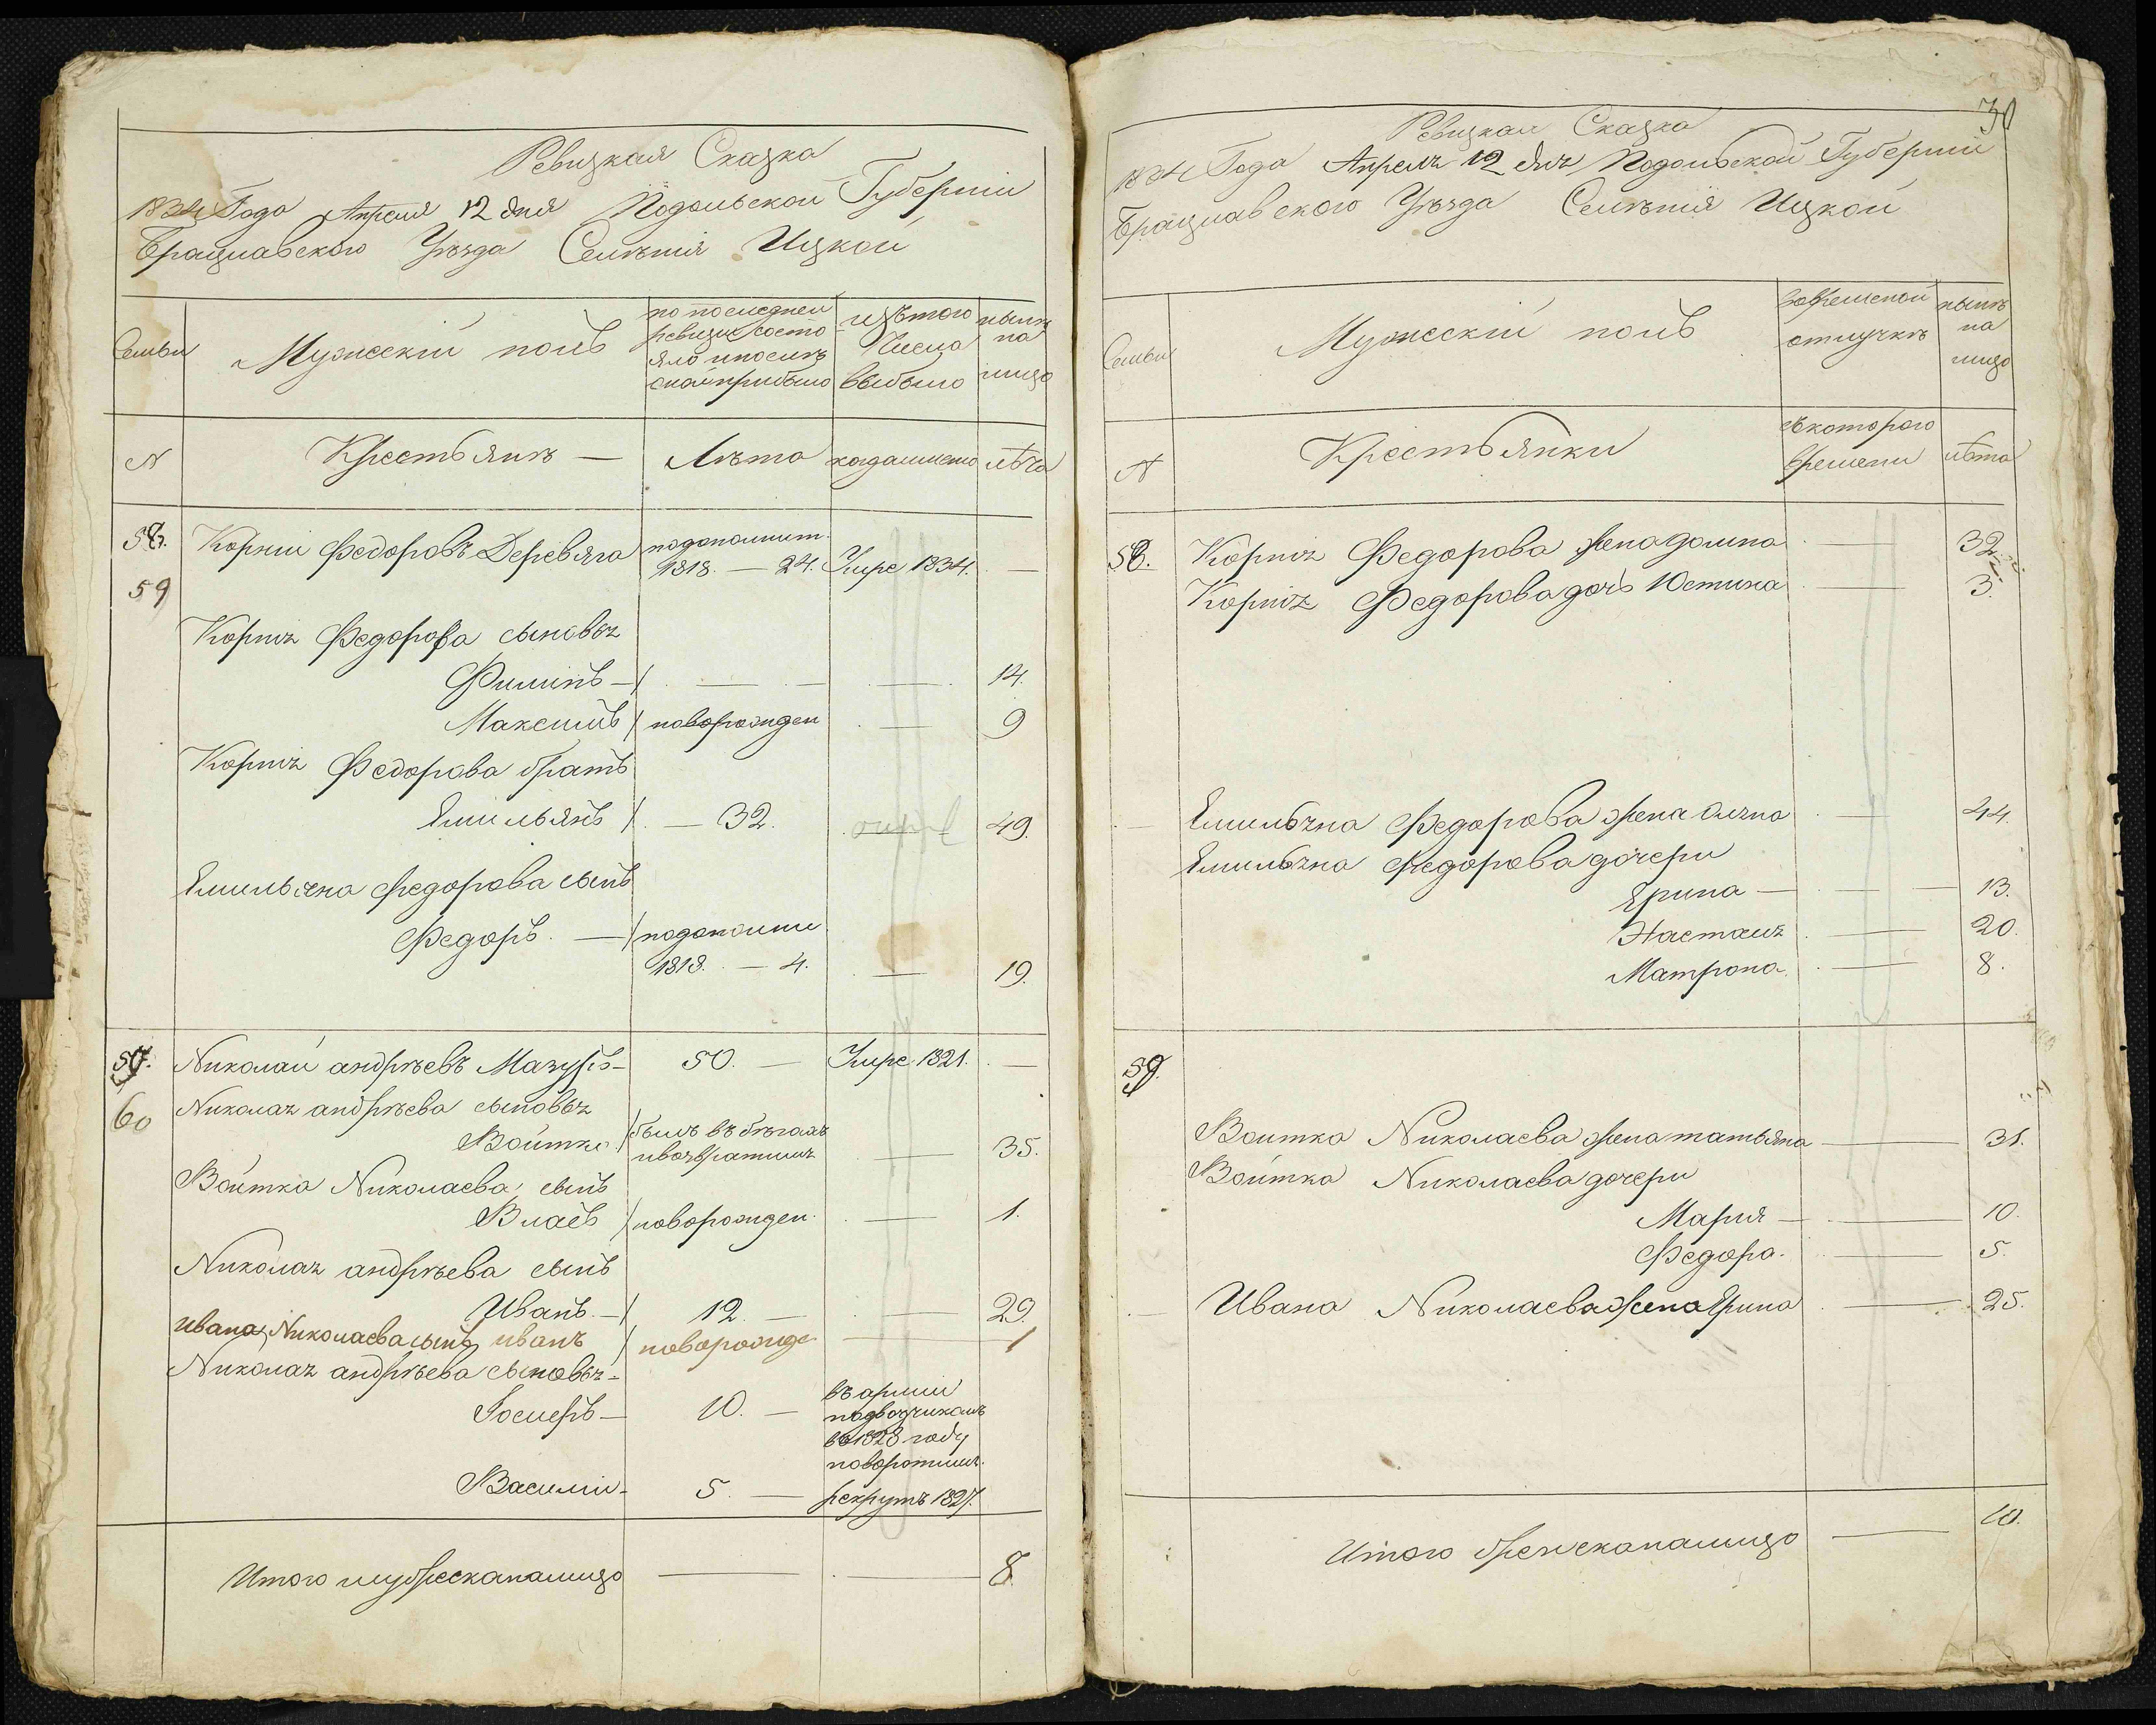 Ревизкая Сказка
1834 Года Апреля 12 дня Подольской Губерніи
Брацлавского Уѣзда Селѣнія Ицкой
Семьи
Мужескій полъ
по последней
ревизіи состо
яло и после
оной прибыло
изътого
Числа
выбыло
нынѣ
на
лицо
N
Крестьянѣ —
Лѣта
когда имено
лѣта
58.
59
Корнѣй Федоровъ Деревяга
подополнит.
1818. — 24.
Умре 1834.
—
Корнія Федорова сыновья
Филипъ —
14.
Максимъ
новорожден
9
Корнія Федорова братъ
Емильянъ
— 32.
49.
Емильяна Федорова сынъ
Федоръ. —
подополни
1818. — 4.
19.
59.
60
Николай андрѣевъ —
50. —
Умре 1821.
—
Николая андрѣева сыновья
Войтко
былъ въ бѣгахъ
ивозвратился
35.
Войтка Николаева сынъ
Власъ
новорожден.
1.
Николая андрѣева сынъ
Иванъ. —
12. —
29.
Ивана Николаева сынъ иванъ
новорожде
1
Николая андрѣева сыновья
Іосифъ —
10. —
въ арміи
подвозчикомъ
въ 1828 году
Василій —
5. —
рекрутъ 1827.
Итого мужеска налицо
8.
30
Ревизкая Сказка
1834 Года Апреля 12 дня Подольской Губерніи
Брацлавского Уѣзда Селѣнія Ицкой
Семьи
Мужескій полъ
вовременой
отлучкѣ
нынѣ
на
лицо
N
Крестьянки
съкоторого
времени
лѣта
58.
Корнія Федорова жена домна
32.
Корнія Федорова дочь Юстина
3.
Емильяна Федорова жена
44.
Емильяна Федорова дочери
Ярина —
13.
Настасія
20.
Матрона.
8.
59.
Войтка Николаева жена татьяна
31.
Войтка Николаева дочери
Марія —
10.
Федора.
5.
Ивана Николаева жена Ярина
25.
Итого женска налицо
10.